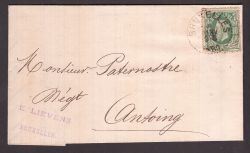 Monsieur Paternostre
Négt
Antoing
E. LIEVENS
BRUXELLES